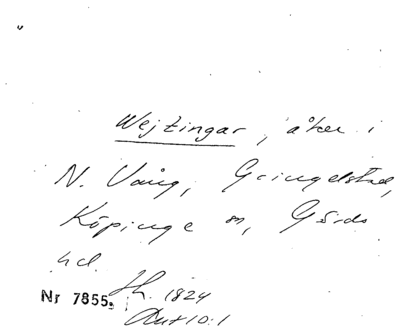 Wejtingar, åker i
N. Vång, Gringelstad,
Köpinge sn, Gärds
hd.
Sk. 1824
Nr 7855.
Aut 10:1